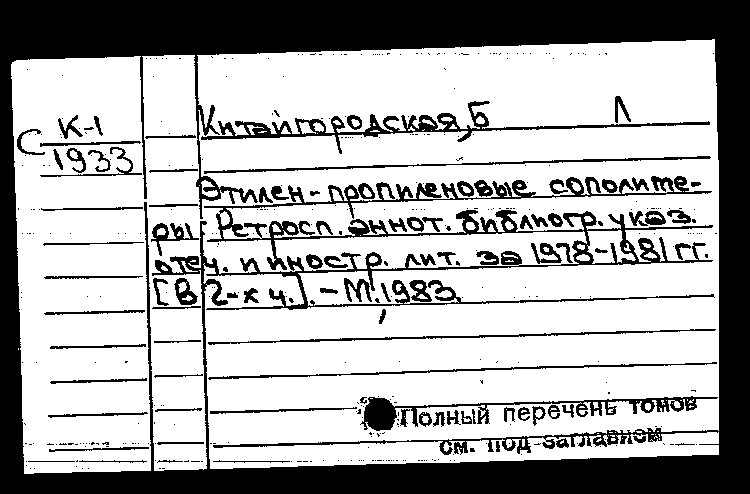 К-1
С 1933
Китайгородская, Б Л
Этилен-пропиленовые сополиме-
ры: Ретросп. аннот. библиогр. указ.
отеч. и иностр. лит. за 1978-1981 гг.
[В 2-х ч.]. - М., 1983.
Полный перечень томов
см. под заглавием